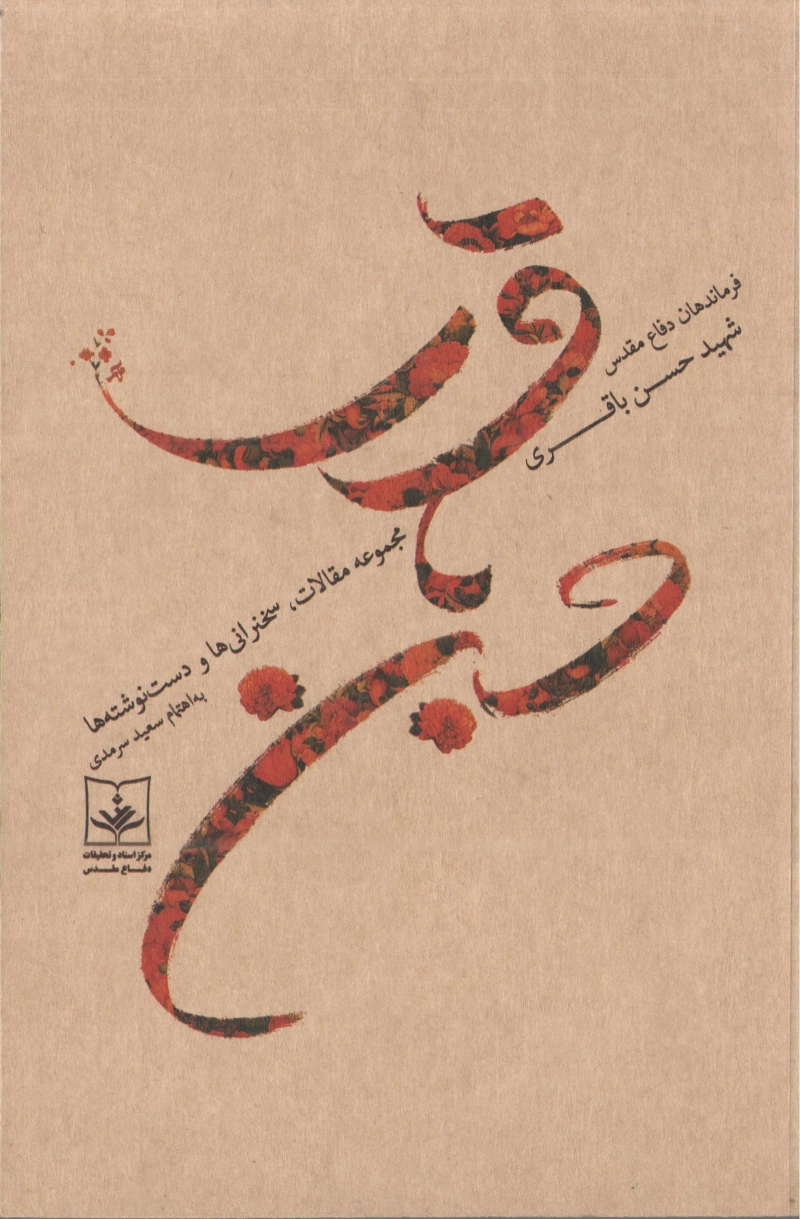 فرماندهان دفاع مقدس
شهید حسن باقری
حسن باقری
مجموعه مقالات، سخنرانی‌ها و دست‌نوشته‌ها
به‌اهتمام سعید سرمدی
مرکز اسناد و تحقیقات
دفاع مقدس